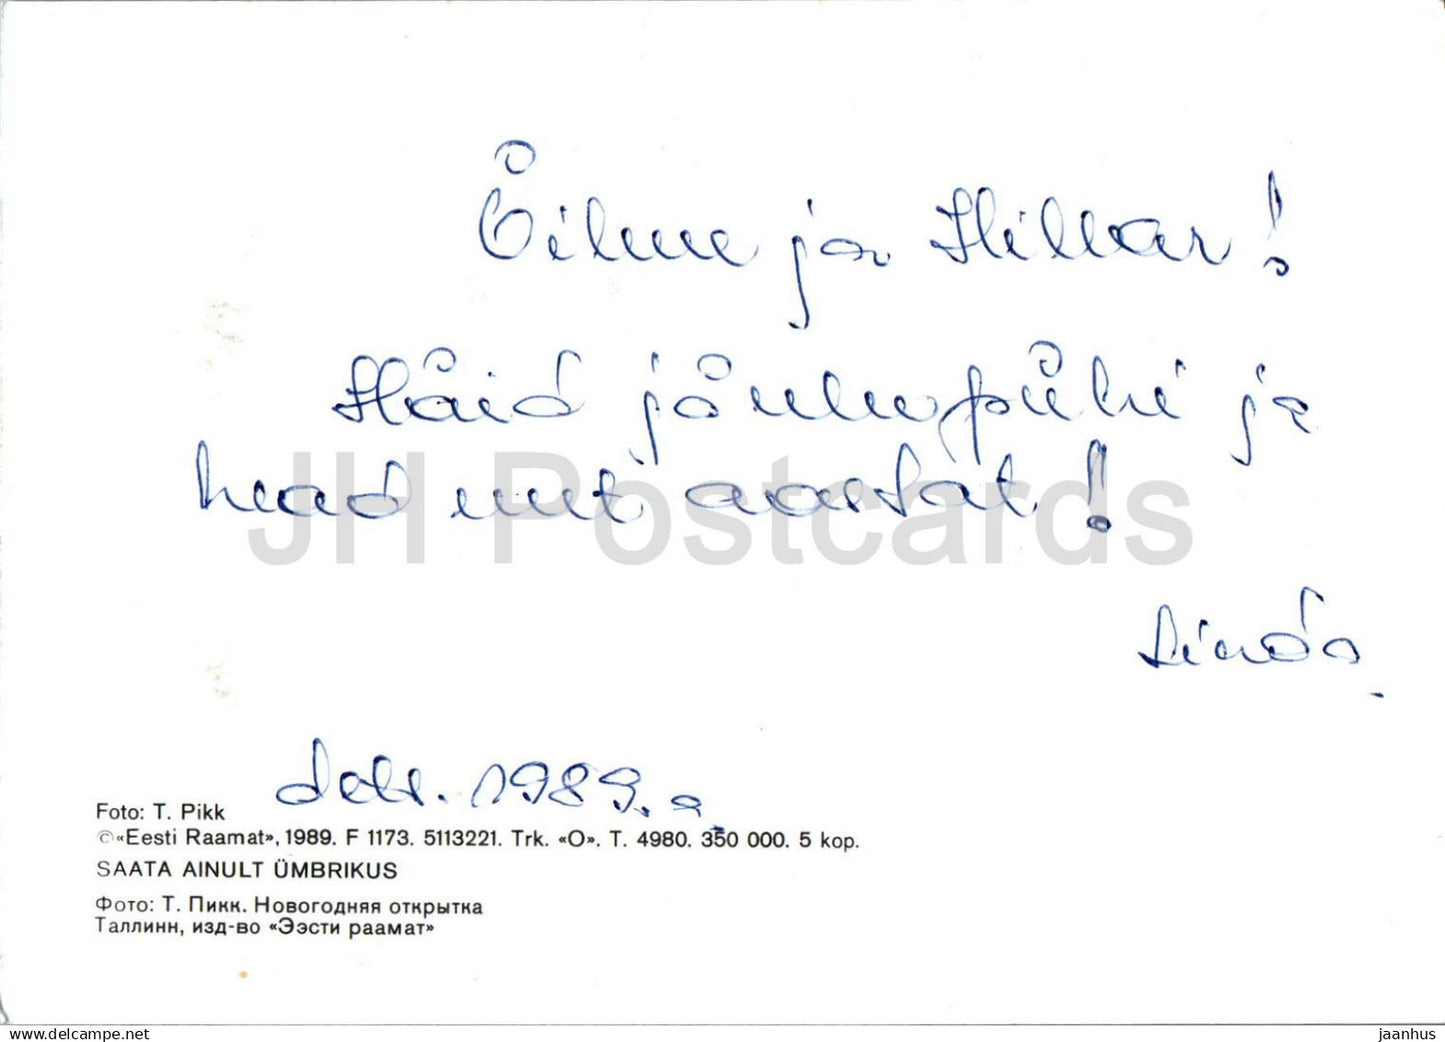 Õilme ja Hillar!
Häid jõulupühi ja
head uut aastat!
Linda
dets. 1989.a.
Foto: T. Pikk
©«Eesti Raamat», 1989. F 1173. 5113221. Trk. «O». T. 4980. 350 000. 5 kop.
SAATA AINULT ÜMBRIKUS
Фото: Т. Пикк. Новогодняя открытка
Таллинн, изд-во «Ээсти раамат»
JH Postcards
www.delcampe.net
jaanhus